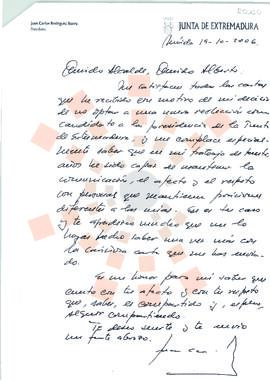 Juan Carlos Rodríguez Ibarra
Presidente
JUNTA DE EXTREMADURA
Mérida 19-10-2006
Querido Alcalde, Querido Alberto:
Me satisfacen todas las cartas
que he recibido con motivo de mi decisión
de no optar a una nueva reelección como
candidato a la presidencia de la Junta
de Extremadura, y me complace especial-
mente saber que en mi trabajo de
años he sido capaz de mantener la
comunicación, el afecto y el respeto
con personas que mantienen posiciones
diferentes a las mías. Es es tu caso
y te agradezco mucho que me lo
hayas hecho saber una vez más con
la cariñosa carta que me has envia-
do.
Es un honor para mí saber que
cuento con tu afecto y con tu respeto
que, sabes, es compartido y, espero,
seguir compartiendo.
Te deseo suerte y te envío
un fuerte abrazo.